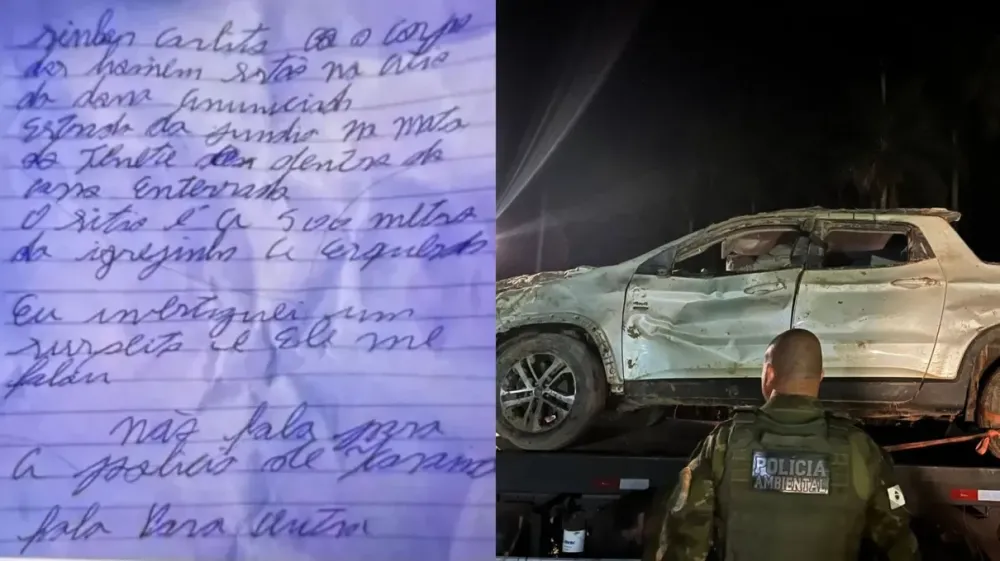 senhor Carlito o corpo
dos homem estão na
da dona Anunciada
Estrada da Jundiá na mata
do Tenete dentro da
casa Enterrada
O sitio é a 500 metro
da igrejinha a Esquerda
Eu investiguei um
suspeito e Ele me
falou
não fala para
a policia de
fala Para outra
POLÍCIA
AMBIENTAL